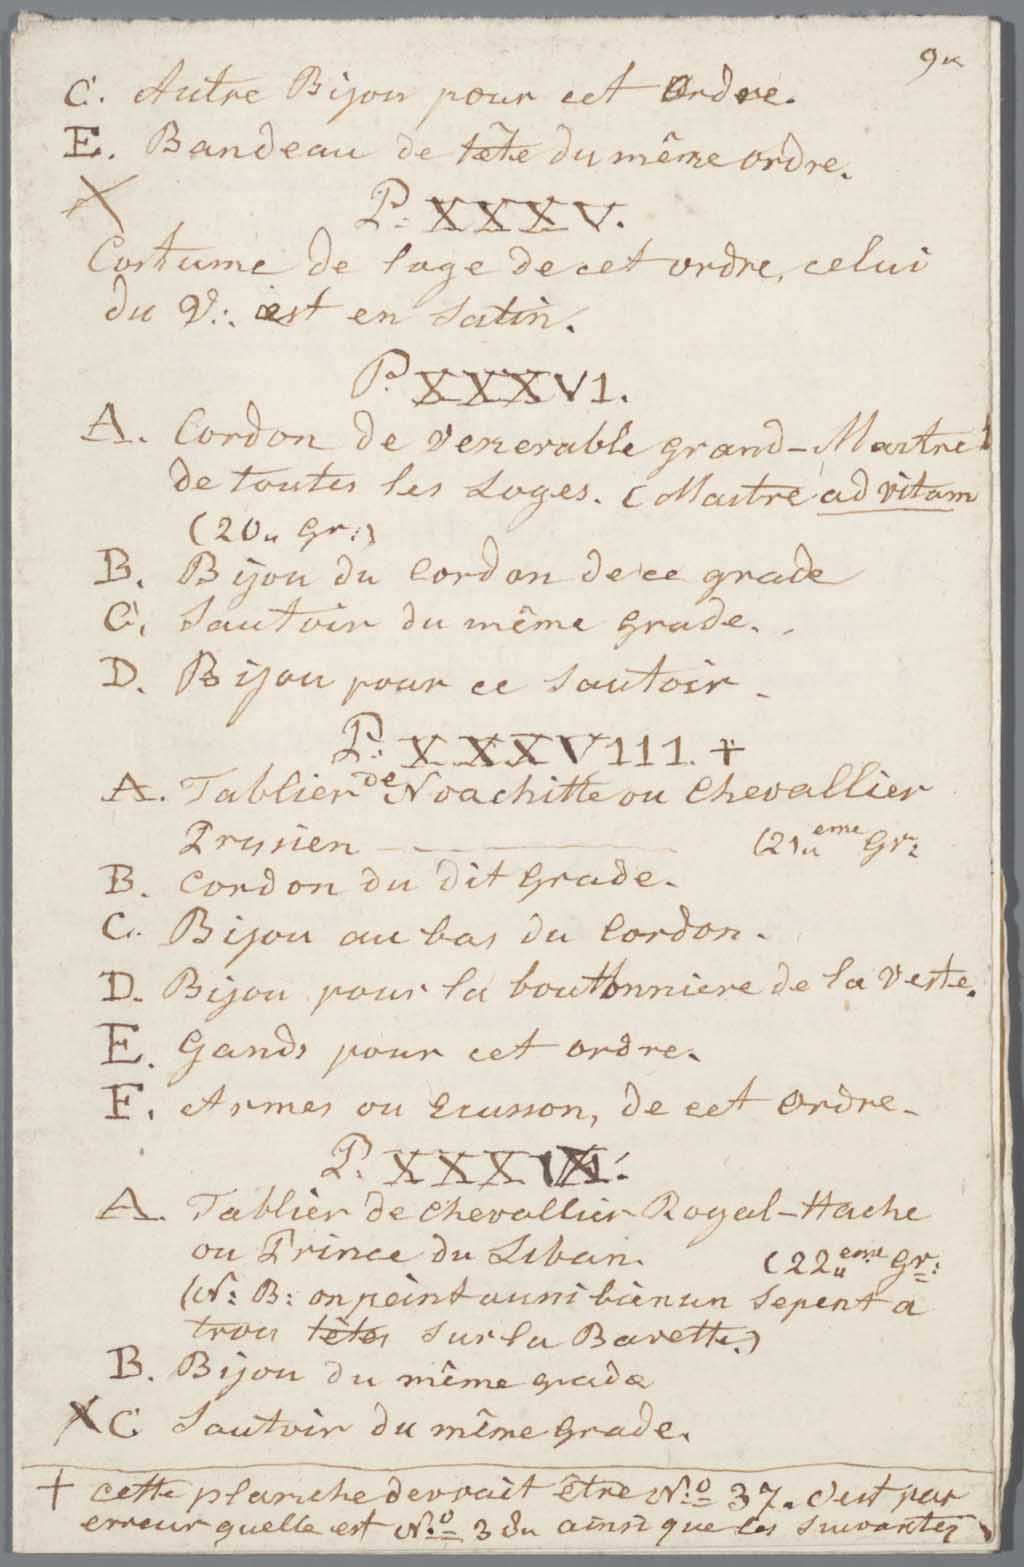 9"
C. Autre Bijou pour cet Ordre.
E. Bandeau de tête du même ordre.
X P: XXXV.
Costume de loge de cet ordre, celui
du V:. est en Satin.
P. XXXVI.
A. Cordon de venerable grand-Maitre
de toutes les Loges. (Maitre ad vitam
(20" Gr:)
B. Bijou du Cordon de ce grade
C. Sautoir du même grade.
D. Bijou pour ce Sautoir.
P: XXXVIII. +
A. Tablier de Noachitte ou Chevallier
Prusien (21" eme Gr:
B. Cordon du dit Grade.
C. Bijou au bas du Cordon.
D. Bijou pour la boutonniere de la Veste.
E. Gands pour cet ordre.
F. Armes ou Ecusson, de cet Ordre.
P. XXXIX.
A. Tablier de Chevallier Royal-Hache
ou Prince du Liban. (22" eme Gr:
(N: B: on peint aussi bien un Sepent a
trois têtes sur la Bavette.)
B. Bijou du même grade
X C Sautoir du même Grade.
+ cette planche devrait être N:o 37. C'est par
erreur quelle est N:o 38 ainsi que les Suivantes